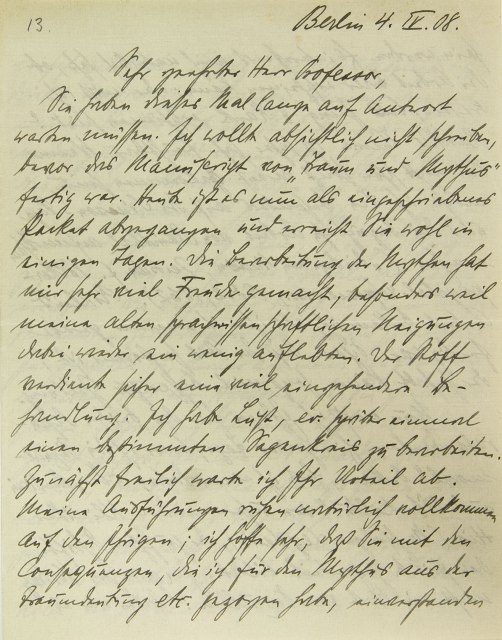 13.
Berlin 4. IV. 08.
Sehr geehrter Herr Professor,
Sie haben dieses Mal lange auf Antwort
warten müssen. Ich wollte absichtlich nicht schreiben,
bevor das Manuscript von „Traum und Mythus“
fertig war. Heute ist es nun als eingeschriebenes
Packet abgegangen und erreicht Sie wohl in
einigen Tagen. Die Bearbeitung der Mythen hat
mir sehr viel Freude gemacht, besonders weil
meine alten sprachwissenschaftlichen Neigungen
dabei wieder ein wenig auflebten. Der Stoff
verdiente sicher eine viel eingehendere Be-
handlung. Ich habe Lust, ev. später einmal
einen bestimmten Sagenkreis zu bearbeiten.
Zunächst freilich warte ich Ihr Urteil ab.
Meine Ausführungen ruhen natürlich vollkommen
auf den Ihrigen; ich hoffe sehr, daß Sie mit den
Consequenzen, die ich für den Mythus aus der
Traumdeutung etc. gezogen habe, einverstanden